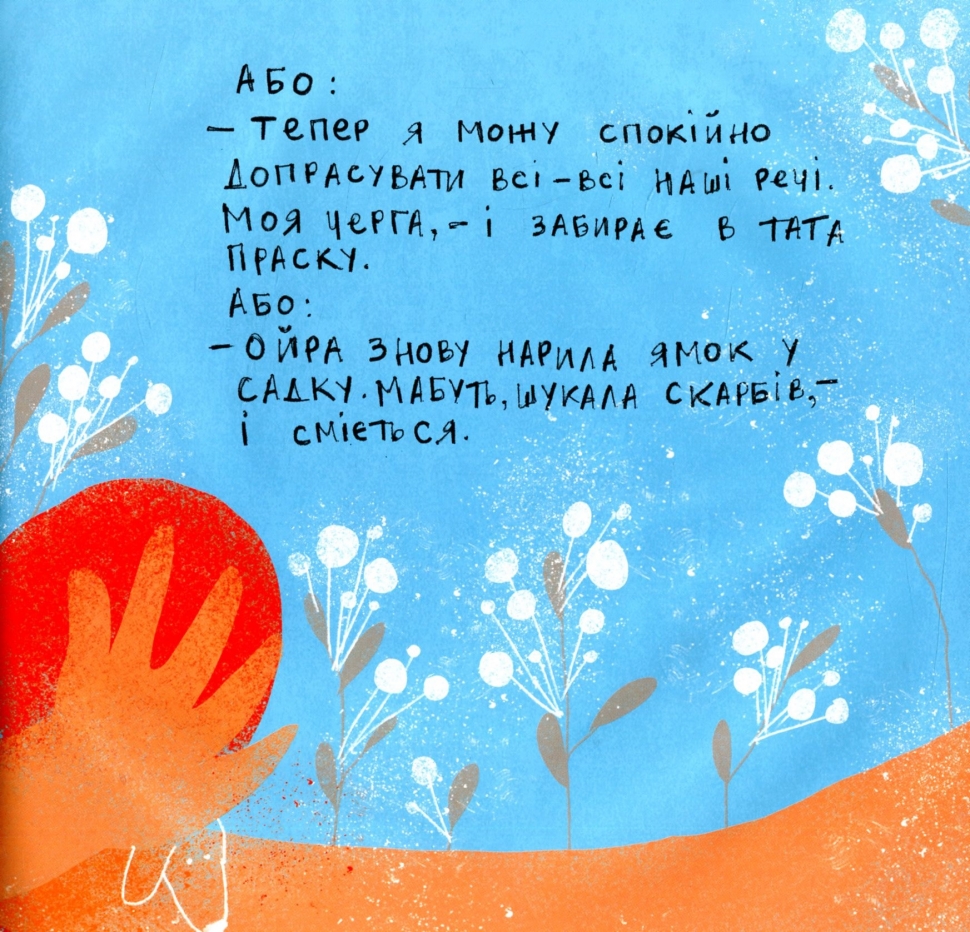 АБО:
– ТЕПЕР Я МОЖУ СПОКІЙНО
ДОПРАСУВАТИ ВСІ-ВСІ НАШІ РЕЧІ.
МОЯ ЧЕРГА, – І ЗАБИРАЄ В ТАТА
ПРАСКУ.
АБО:
– ОЙРА ЗНОВУ НАРИЛА ЯМОК У
САДКУ. МАБУТЬ, ШУКАЛА СКАРБІВ, –
І СМІЄТЬСЯ.